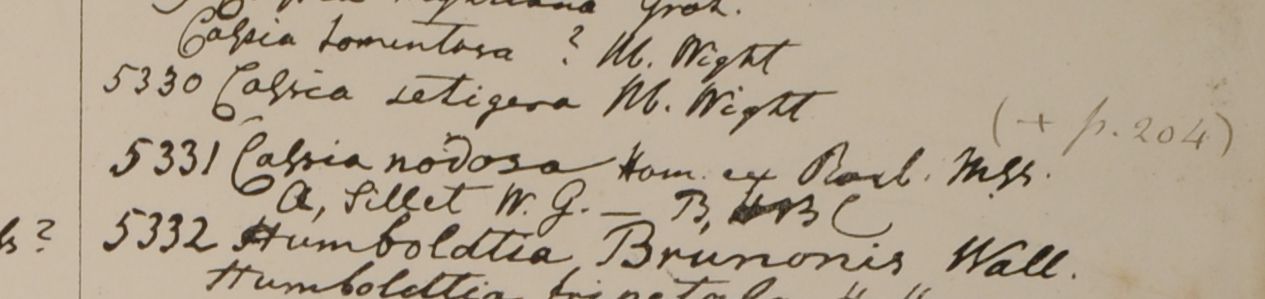 Grah.
Cassia tomentosa ? M. Wight
5330 Cassia setigera M. Wight
(+ p. 204)
5331 Cassia nodosa Ham. ex Roxb. Mss.
A, Sillet W. G. — B, HBC
? 5332 Humboldtia Brunonis Wall.
Humboldtia